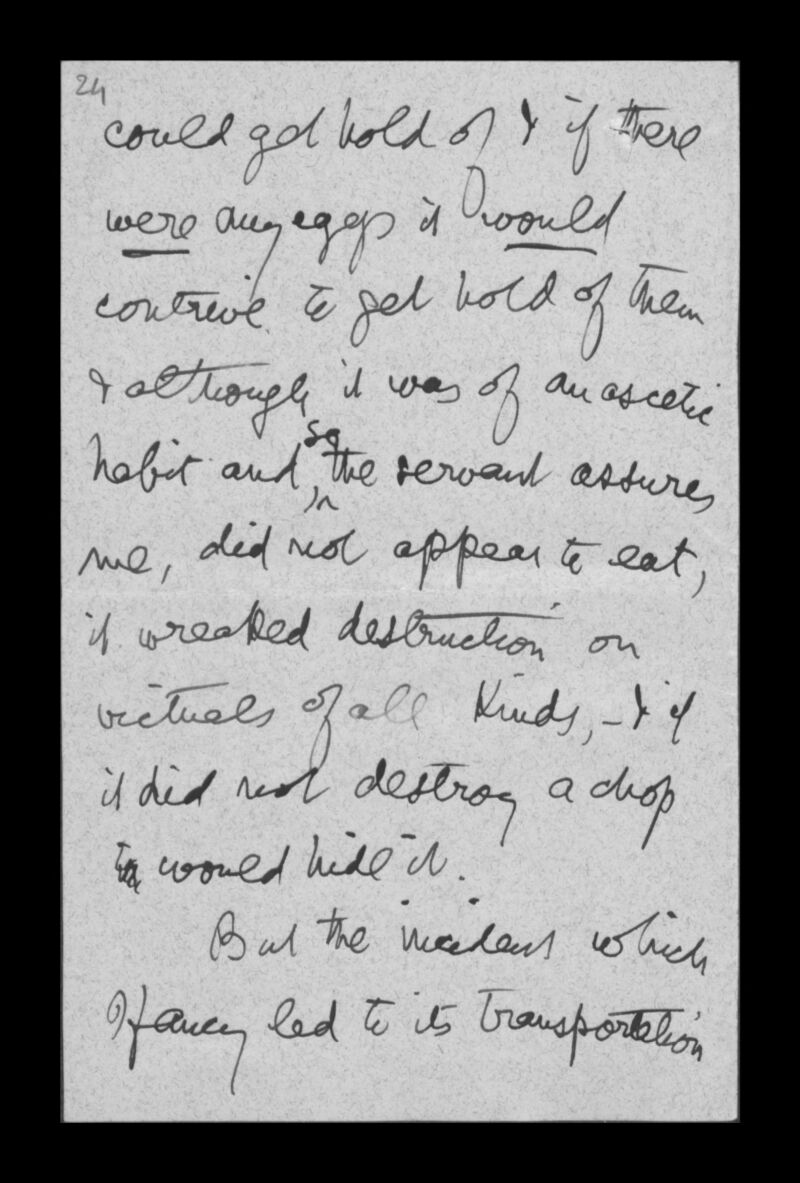 24
could get hold of & if there
were any eggs it would
contrive to get hold of them
& although it was of an ascetic
habit and, so the servant assures
me, did not appear to eat,
it wreaked destruction on
victuals of all kinds, - & if
it did not destroy a chop
it would hide it.
But the incident which
I fancy led to its transportation